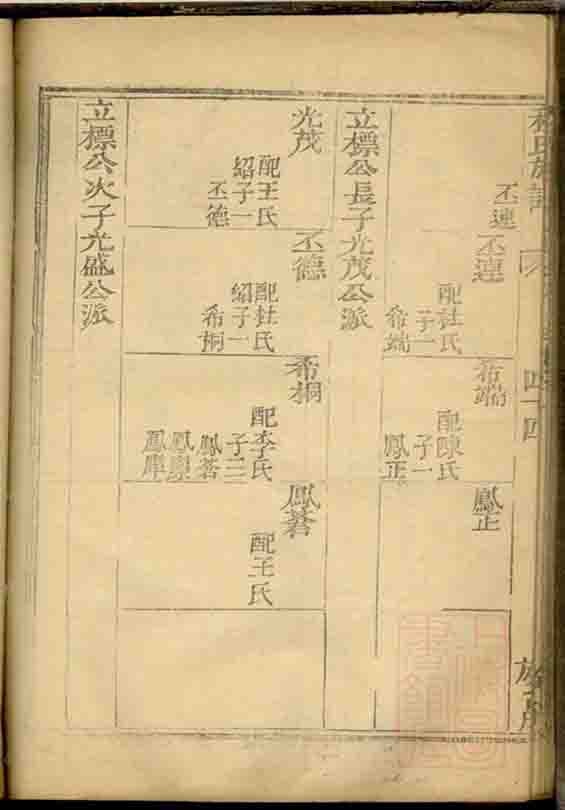 丕連
丕連
配杜氏
子一
希端
希端
配陳氏
子一
鳳正
鳳正
四十四
立標公長子光茂公派
光茂
配王氏
紹子一
丕德
丕德
配杜氏
紹子一
希桐
希桐
配李氏
子三
鳳蒼
鳳蒼
配王氏
立標公次子光盛公派